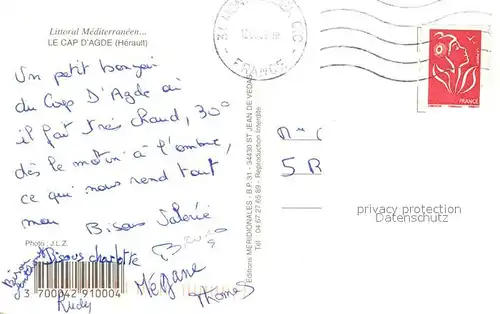 Littoral Méditerranéen...
LE CAP D'AGDE (Hérault)
Un petit bonjour
du Cap D'Agde où
il fait très chaud, 30°
dès le matin à l'ombre,
ce qui nous rend tout
mou Bisous Valérie
Bisous
Photo : J.L.Z.
Bisous charlotte
Mégane
Thomas
Rudy
3 700042 910004
Editions MERIDIONALES - B.P. 31 - 34430 ST JEAN DE VEDAS
Tél. 04 67 27 65 89 - Reproduction interdite
FRANCE
FRANCE
5 R
privacy protection
Datenschutz